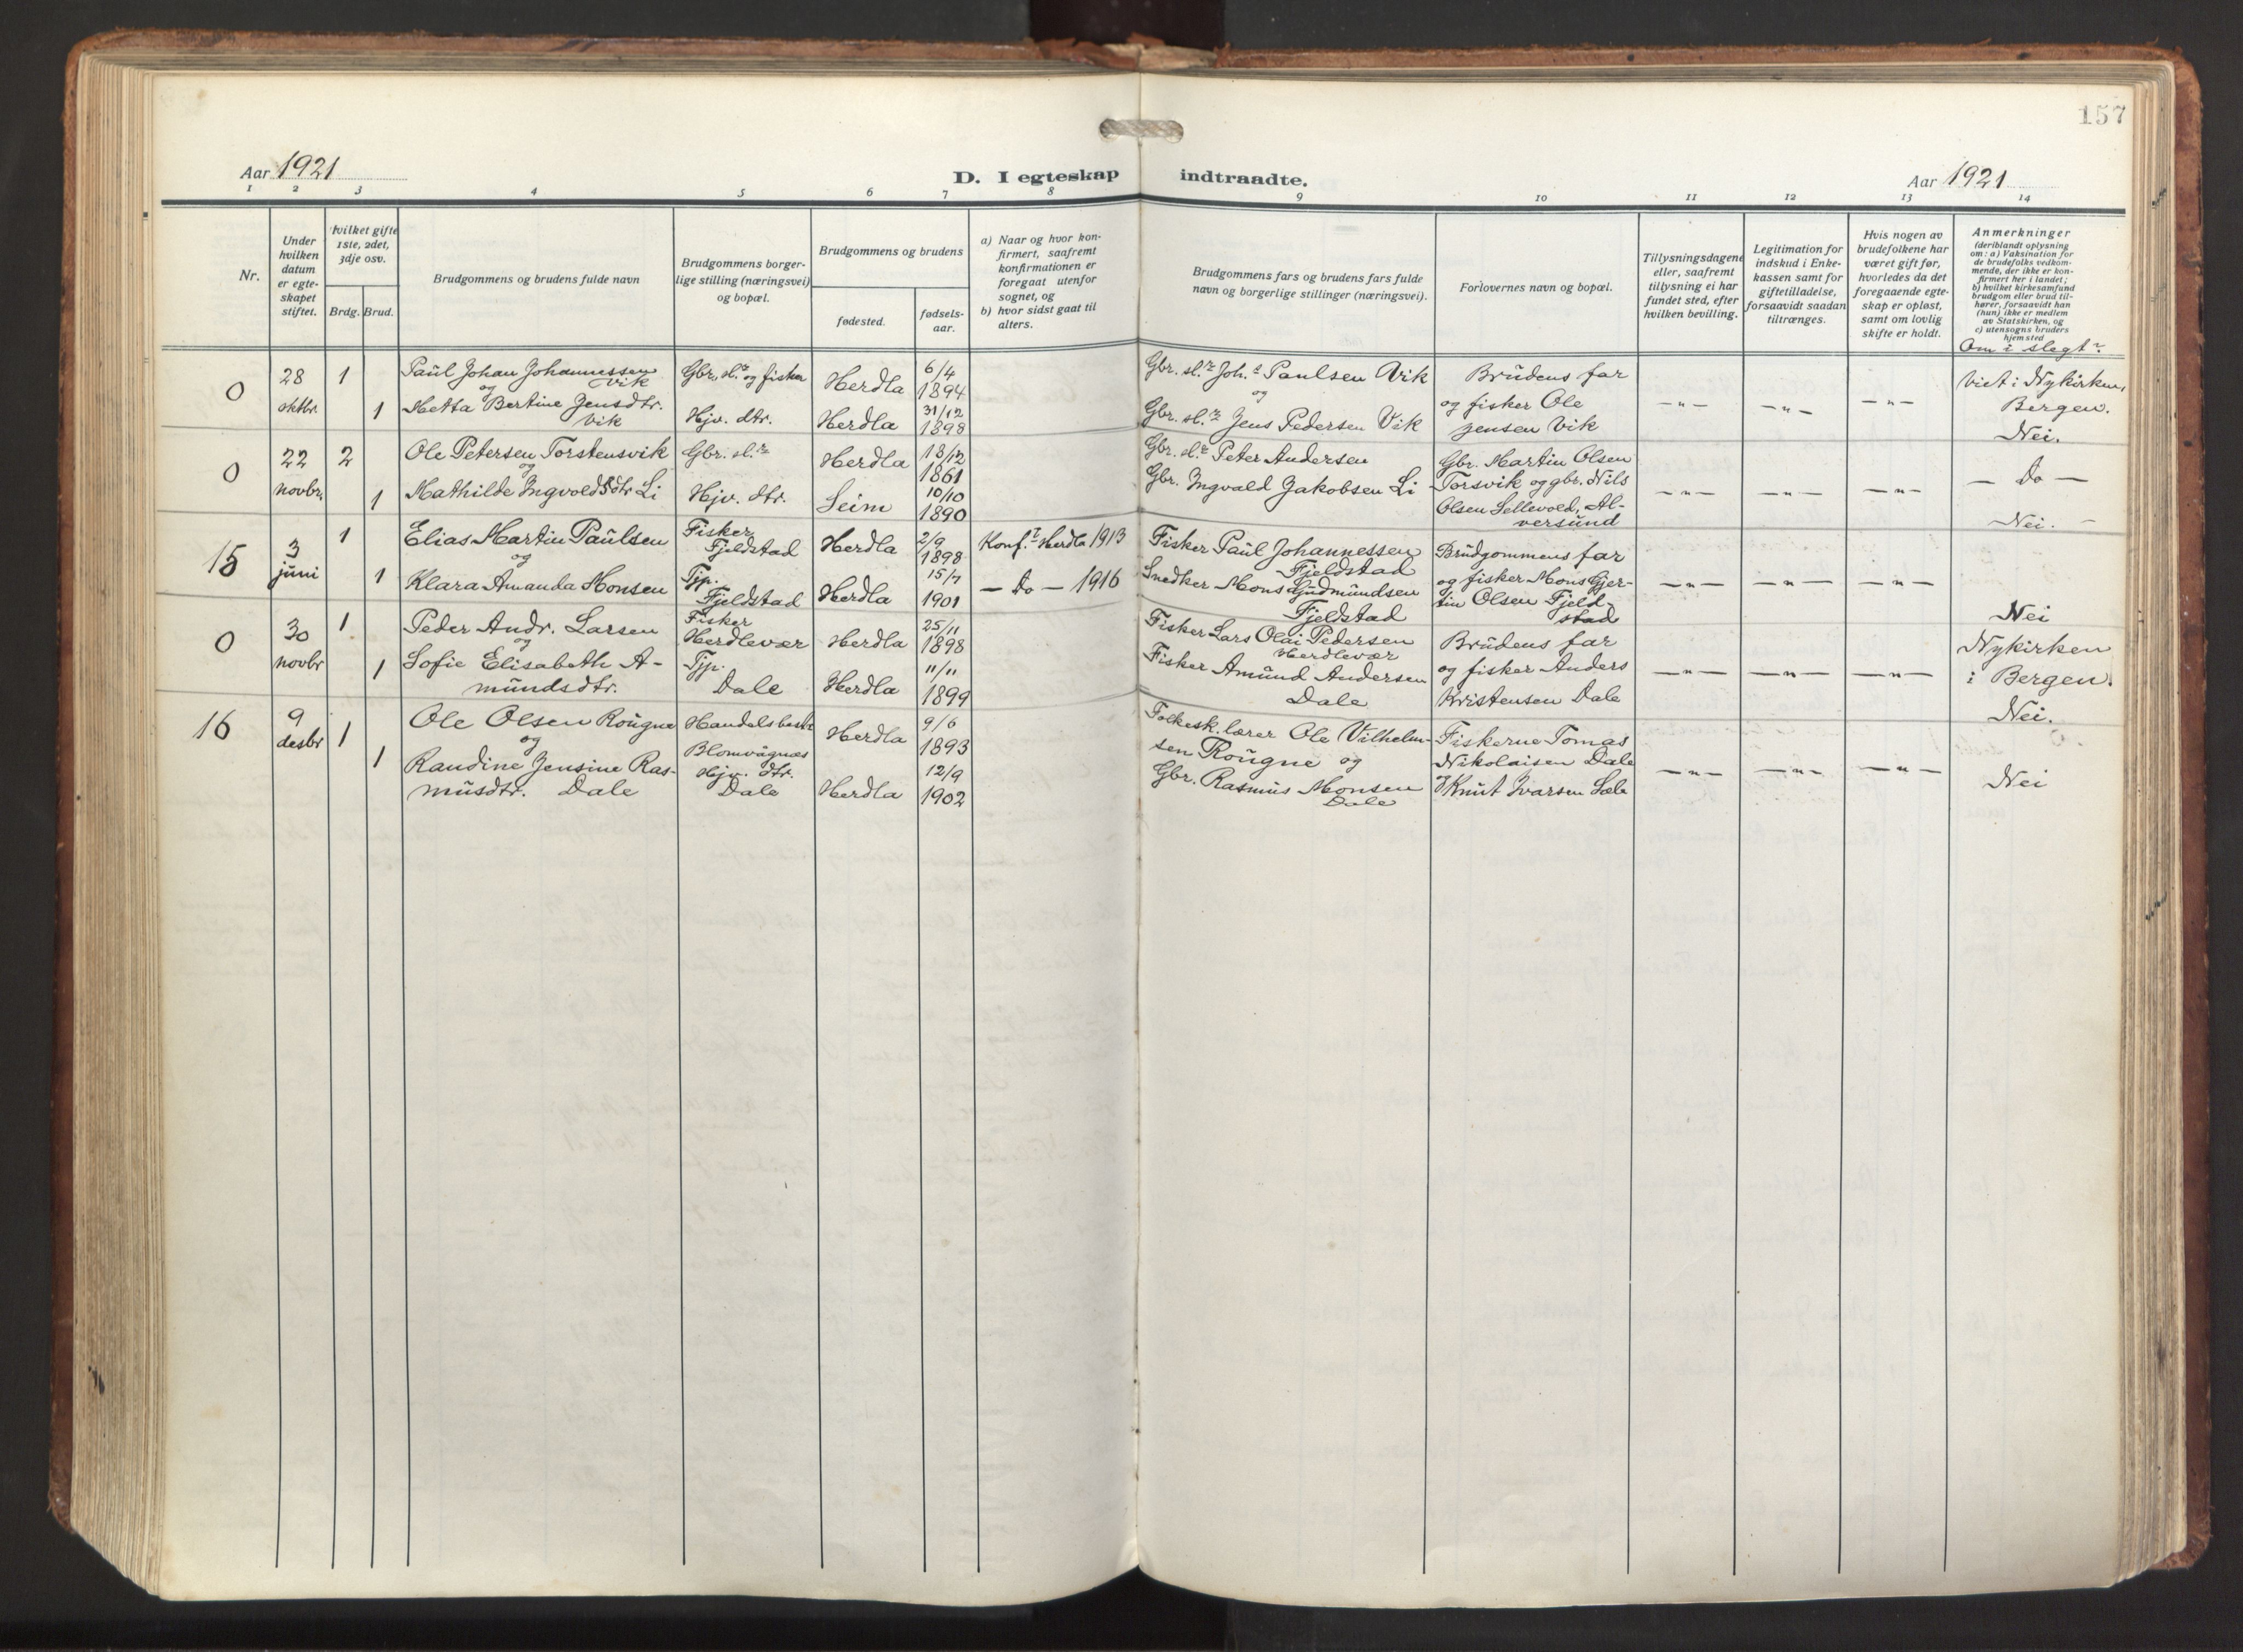 157
Aar 1921
D. I egteskap indtraadte.
Aar 1921
1 2 3 4 5 6 7 8 9 10 11 12 13 14
Nr.
Under
hvilken
datum
er egte-
skapet
stiftet.
Hvilket gifte
1ste, 2det,
3dje osv.
Brdg. Brud.
Brudgommens og brudens fulde navn
Brudgommens borger-
lige stilling (næringsvei)
og bopæl.
Brudgommens og brudens
fødested.
fødsels-
aar.
a) Naar og hvor kon-
firmert, saafremt
konfirmationen er
foregaat utenfor
sognet, og
b) hvor sidst gaat til
alters.
Brudgommens fars og brudens fars fulde
navn og borgerlige stillinger (næringsvei).
Forlovernes navn og bopæl.
Tillysningsdagene
eller, saafremt
tillysning ei har
fundet sted, efter
hvilken bevilling.
Legitimation for
indskud i Enke-
kassen samt for
giftetilladelse,
forsaavidt saadan
tiltrænges.
Hvis nogen av
brudefolkene har
været gift før,
hvorledes da det
foregaaende egte-
skap er opløst,
samt om lovlig
skifte er holdt.
Anmerkninger
(deriblandt oplysning
om: a) Vaksination for
de brudefolks vedkom-
mende, der ikke er kon-
firmert her i landet;
b) hvilket kirkesamfund
brudgom eller brud til-
hører, forsaavidt han
(hun) ikke er medlem
av Statskirken, og
c) utensogns bruders
hjemsted
Om i slegt?
0
28
oktbr.
1
1
Paul Johan Johannessen
Vik
og
Metta Bertine Jensdtr.
Vik
Gbr. sl.r og fisker
Hjv. dtr.
Herdla
Herdla
6/4
1894
31/12
1898
Gbr. sl.r Joh.s Paulsen Vik
og
Gbr. sl.r Jens Pedersen Vik
Brudens far
og fisker Ole
Jensen Vik
— " —
— " —
— " —
Viet i Nykirken,
Bergen.
Nei.
0
22
novbr.
2
1
Ole Petersen Torstensvik
og
Mathilde Ingvoldsdtr Li
Gbr. sl.r
Hjv. dtr.
Herdla
Seim
13/12
1861
10/10
1890
Gbr. sl.r Peter Andersen
Gbr. Ingvald Jakobsen Li
Gbr. Martin Olsen
Torsvik og gbr. Nils
Olsen Sellevold, Al-
versund
— " —
— " —
— " —
— Do —
Nei. —
15
3
juni
1
1
Elias Martin Paulsen
og
Klara Amanda Monsen
Fisker
Fjeldstad
Tjp.
Fjeldstad
Herdla
Herdla
2/9
1898
15/7
1901
Konf.t Herdla 1913
— Do — 1916
Fisker Paul Johannessen
Fjeldstad
Snedker Mons Gudmundsen
Fjeldstad
Brudgommens far
og fisker Mons Gjer-
tin Olsen Fjeld-
stad
— " —
— " —
— " —
Nei
0
30
novbr
1
1
Peder Andr. Larsen
og
Sofie Elisabeth A-
mundsdtr.
Fisker
Herdlevær
Tjp.
Dale
Herdla
Herdla
25/11
1898
11/11
1899
Fisker Lars Olai Pedersen
Herdlevær
Fisker Amund Andersen
Dale
Brudens far
og fisker Anders
Kristensen Dale
— " —
— " —
— " —
Nykirken
i Bergen.
Nei.
16
9
desbr
1
1
Ole Olsen Rougne
og
Randine Jensine Ras-
musdtr. Dale
Blomvågnes
Hjv. dtr.
Dale
Herdla
Herdla
9/6
1893
12/9
1902
Folkesk. lærer Ole Vilhelm-
sen Rougne og
Gbr. Rasmus Monsen
Dale
Fiskerne Tomas
Nikolaisen Dale
Knut Ivarsen Sæle
— " —
— " —
— " —
Nei